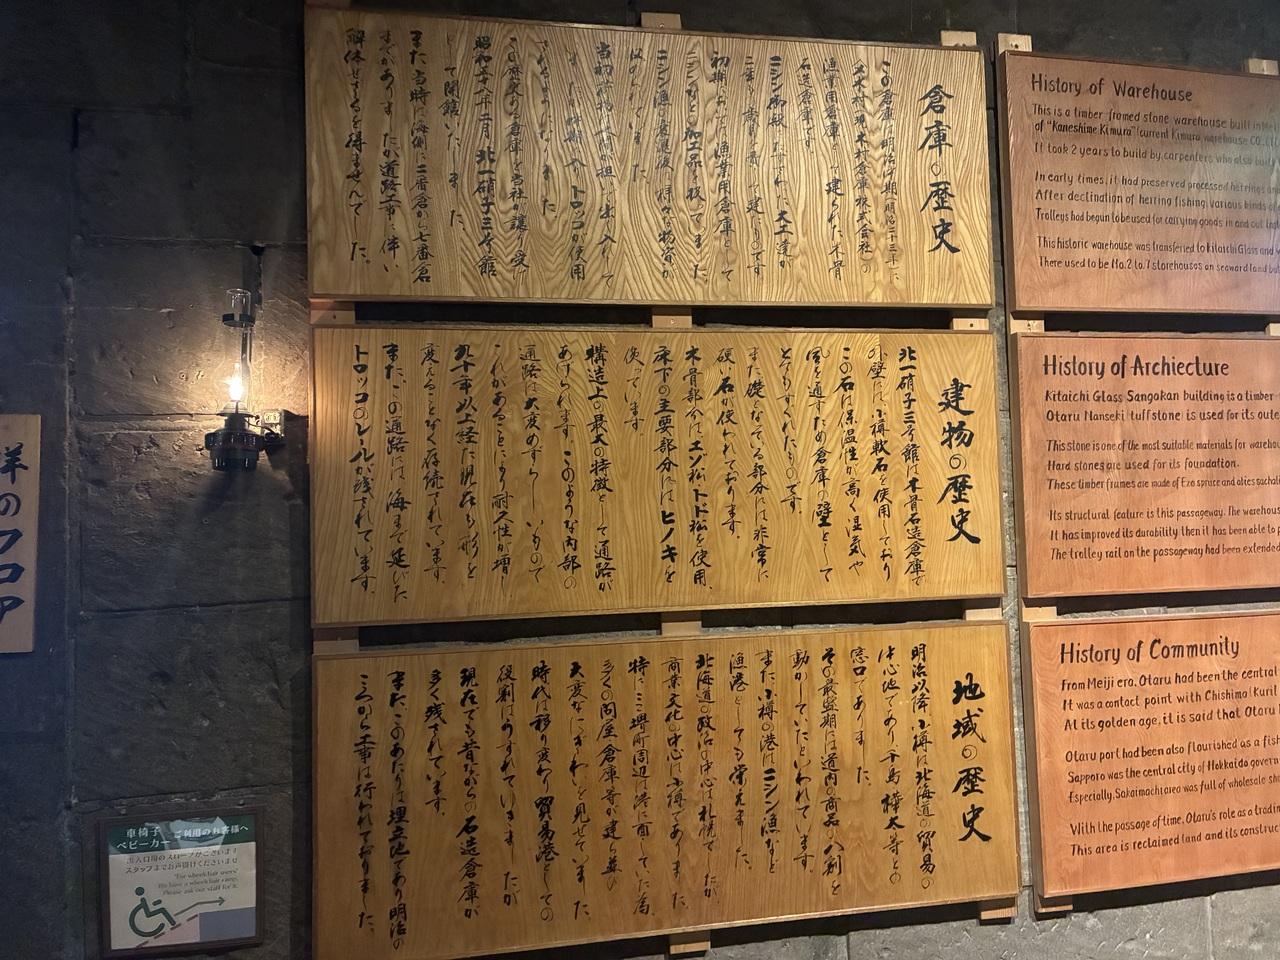 倉庫の歴史
この倉庫は明治中期(明治二十三年)に
漁業用倉庫として建てられた木骨
石造倉庫です。
ニシン御殿
初期においては漁業用倉庫として
ニシンなどの加工品を扱ってました
ニシン漁の衰退後、様々な物資が
トロッコが使用
この歴史ある倉庫を当社が譲り受け
昭和五十八年二月、北一硝子三号館
して開館いたしました
また当時は海側に二番倉から七番倉
までがありましたが道路工事に伴い
解体せざるを得ませんでした。
建物の歴史
北一硝子三号館は木骨石造倉庫で
外壁には小樽軟石を使用しており
この石は保温性が高く湿気や
風を通すため倉庫の壁として
とてもすぐれたものです。
また礎となっている部分には非常に
硬い石が使われております。
木骨部分はエゾ松トド松を使用、
床下の主要部分にはヒノキを
使っています。
構造上の最大の特徴として通路が
あげられます。このような内部の
通路は大変めずらしいもので
これがあることにより耐久性が増し
九十年以上経た現在も形を
変えることなく存続されています。
また、この通路には海まで延びた
トロッコのレールが残されています。
地域の歴史
明治以降小樽は北海道の貿易の
中心地であり、千島樺太等との
窓口でありました。
その最盛期には道内の商品の八割を
動かしていたといわれています。
また、小樽の港はニシン漁など
漁港としても栄えました。
北海道の政治の中心は札幌でしたが、
商業文化の中心は小樽でありました
特にここ堺町周辺は港に面していた為
多くの問屋倉庫等が建ち並び
大変なにぎわいを見せていました
時代は移り変わり貿易港としての
役割はうすれていきましたが
現在でも昔ながらの石造倉庫が
多く残されています。
また、このあたりは埋立地であり明治の
ころから工事は行われておりました。
History of Warehouse
This is a timber framed stone warehouse built in
of "Kaneshime Kimura"(current Kimura warehouse CO.,
It took 2 years to build by carpenters who also built
In early times, it had preserved processed herrings
After declination of herring fishing, various kinds of
Trolleys had begun to be used for carrying goods in and out
This historic warehouse was transferred to Kitaichi Glass and
There used to be No.2 to 7 storehouses on seaward land
History of Archiecture
Kitaichi Glass Sangokan building is a timber
Otaru Nanseki tuffstone is used for its oute
This stone is one of the most suitable materials for
Hard stones are used for its foundation.
These timber frames are made of Ezo spruce and abies
Its structural feature is this passageway. The
It has improved its durability then it has been able to
The trolley rail on the passageway had been extended
History of Community
From Meiji era, Otaru had been the central
It was a contact point with Chishima(Kuril
At its golden age, it is said that Otaru
Otaru port had been also flourished as a fish
Sapporo was the central city of Hokkaido govern
Especially, Sakaimachi area was full of wholesale
With the passage of time, Otaru's role as a tradin
This area is reclaimed land and its construc
車椅子
ベビーカー
ご利用のお客様へ
出入口用のスロープがございます
スタッフまでお声掛けくださいませ
"For wheelchair users"
We have a wheelchair ramp.
Please ask our staff for it.